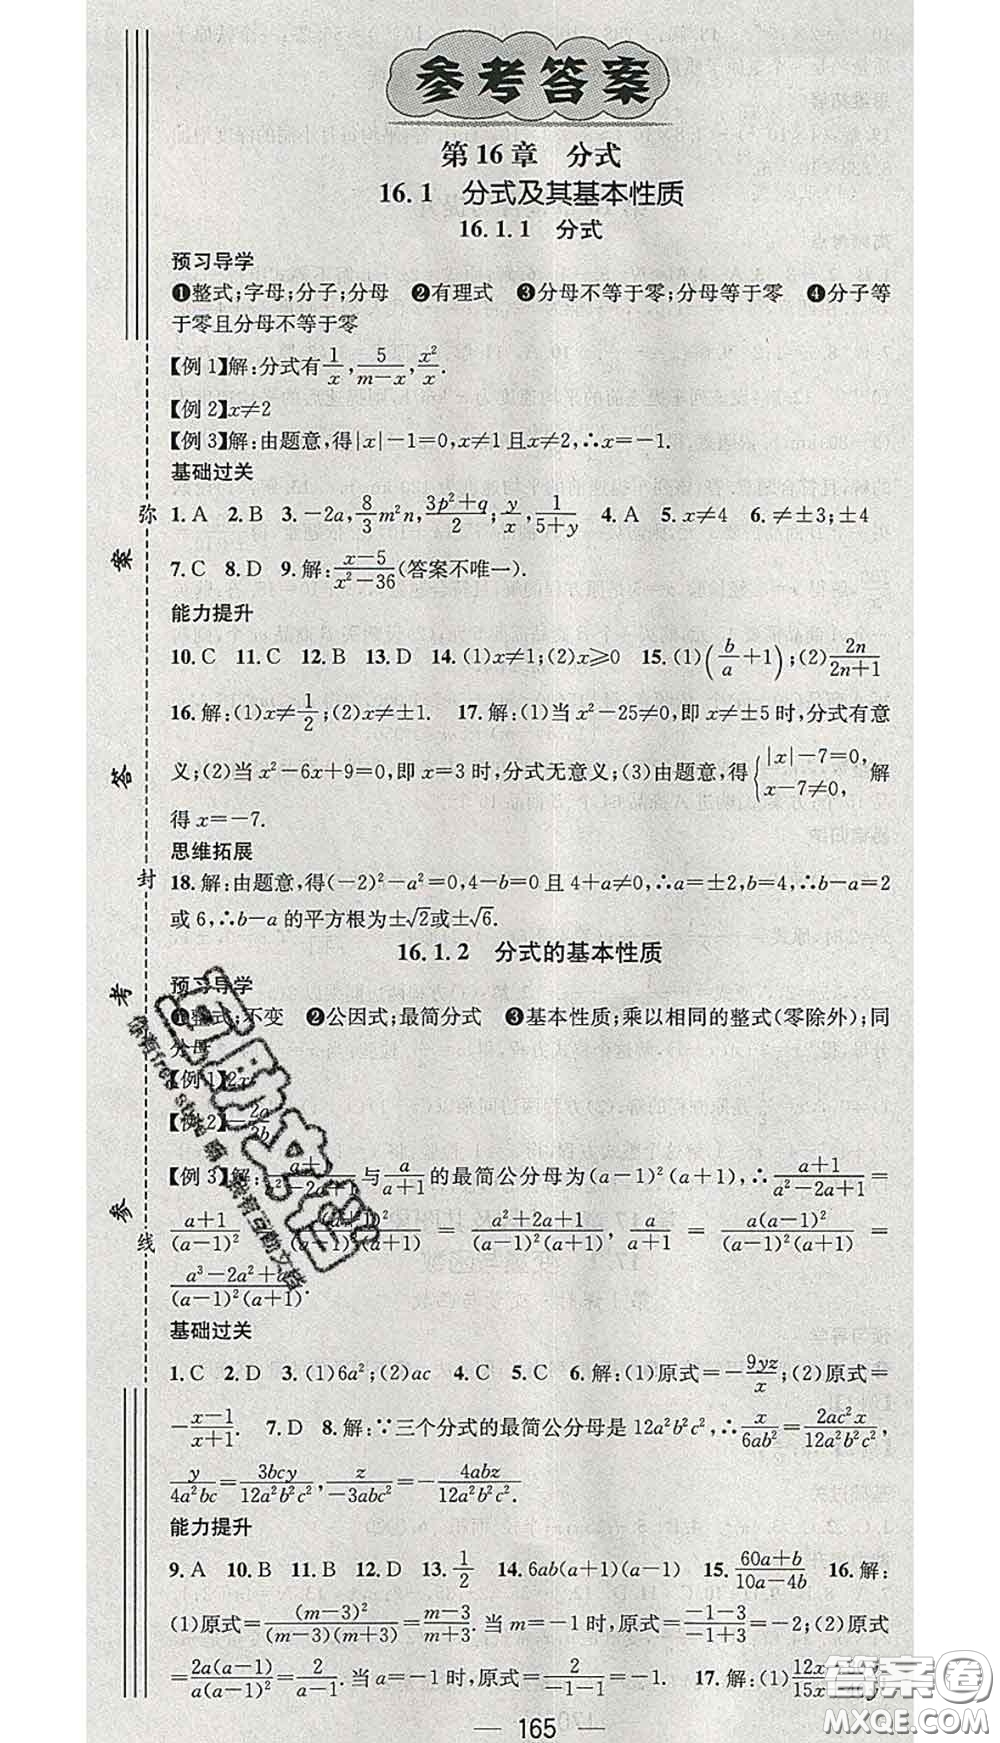 参考答案
第16章 分式
16.1 分式及其基本性质
16.1.1 分式
预习导学
❶整式;字母;分子;分母 ❷有理式 ❸分母不等于零;分母等于零 ❹分子等
于零且分母不等于零
【例1】解:分式有1/x,5/(m-x),x²/x.
【例2】x≠2
【例3】解:由题意,得|x|-1=0,x≠1且x≠2,∴x=-1.
基础过关
1.A 2.B 3.-2a,8/3 m²n,(3p²+q)/2;y/x,1/(5+y) 4.A 5.x≠4 6.≠±3;±4
7.C 8.D 9.解:(x-5)/(x²-36)(答案不唯一).
能力提升
10.C 11.C 12.B 13.D 14.(1)x≠1;(2)x⩾0 15.(1)(b/a+1);(2)2n/(2n+1)
16.解:(1)x≠1/2;(2)x≠±1. 17.解:(1)当x²-25≠0,即x≠±5时,分式有意
义;(2)当x²-6x+9=0,即x=3时,分式无意义;(3)由题意,得{|x|-7=0, x-7≠0,解
得x=-7.
思维拓展
18.解:由题意,得(-2)²-a²=0,4-b=0且4+a≠0,∴a=±2,b=4,∴b-a=2
或6,∴b-a的平方根为±√2或±√6.
16.1.2 分式的基本性质
预习导学
❶整式;不变 ❷公因式;最简分式 ❸基本性质;乘以相同的整式(零除外);同
分母
【例1】2x
【例2】-2a/
【例3】解:(a+1)/(a²-2a+1)与a/(a+1)的最简公分母为(a-1)²(a+1),∴(a+1)/(a²-2a+1)=
(a+1)/(a-1)²=(a²+2a+1)/((a-1)²(a+1)),a/(a+1)=a(a-1)²/((a-1)²(a+1))=
(a³-2a²+a)/((a-1)²(a+1)).
基础过关
1.C 2.D 3.(1)6a²;(2)ac 4.C 5.C 6.解:(1)原式=-9yz/x;(2)原式=
-(x-1)/(x+1). 7.D 8.解:∵三个分式的最简公分母是12a²b²c²,∴x/6ab²=2ac²x/12a²b²c²,
y/4a²bc=3bcy/12a²b²c²,z/-3abc²=-4abz/12a²b²c².
能力提升
9.A 10.B 11.B 12.D 13.1/2 14.6ab(a+1)(a-1) 15.(60a+b)/(10a-4b) 16.解:
(1)原式=(m-3)²/((m-3)(m+3))=(m-3)/(m+3).当m=-1时,原式=(-1-3)/(-1+3)=-2;(2)原式
=2a(a-1)/(a(a-1)²)=2/(a-1).当a=-1时,原式=2/(-1-1)=-1. 17.解:(1)
165
弥
封
线
参
考
答
案
答案卷
MXQE.COM